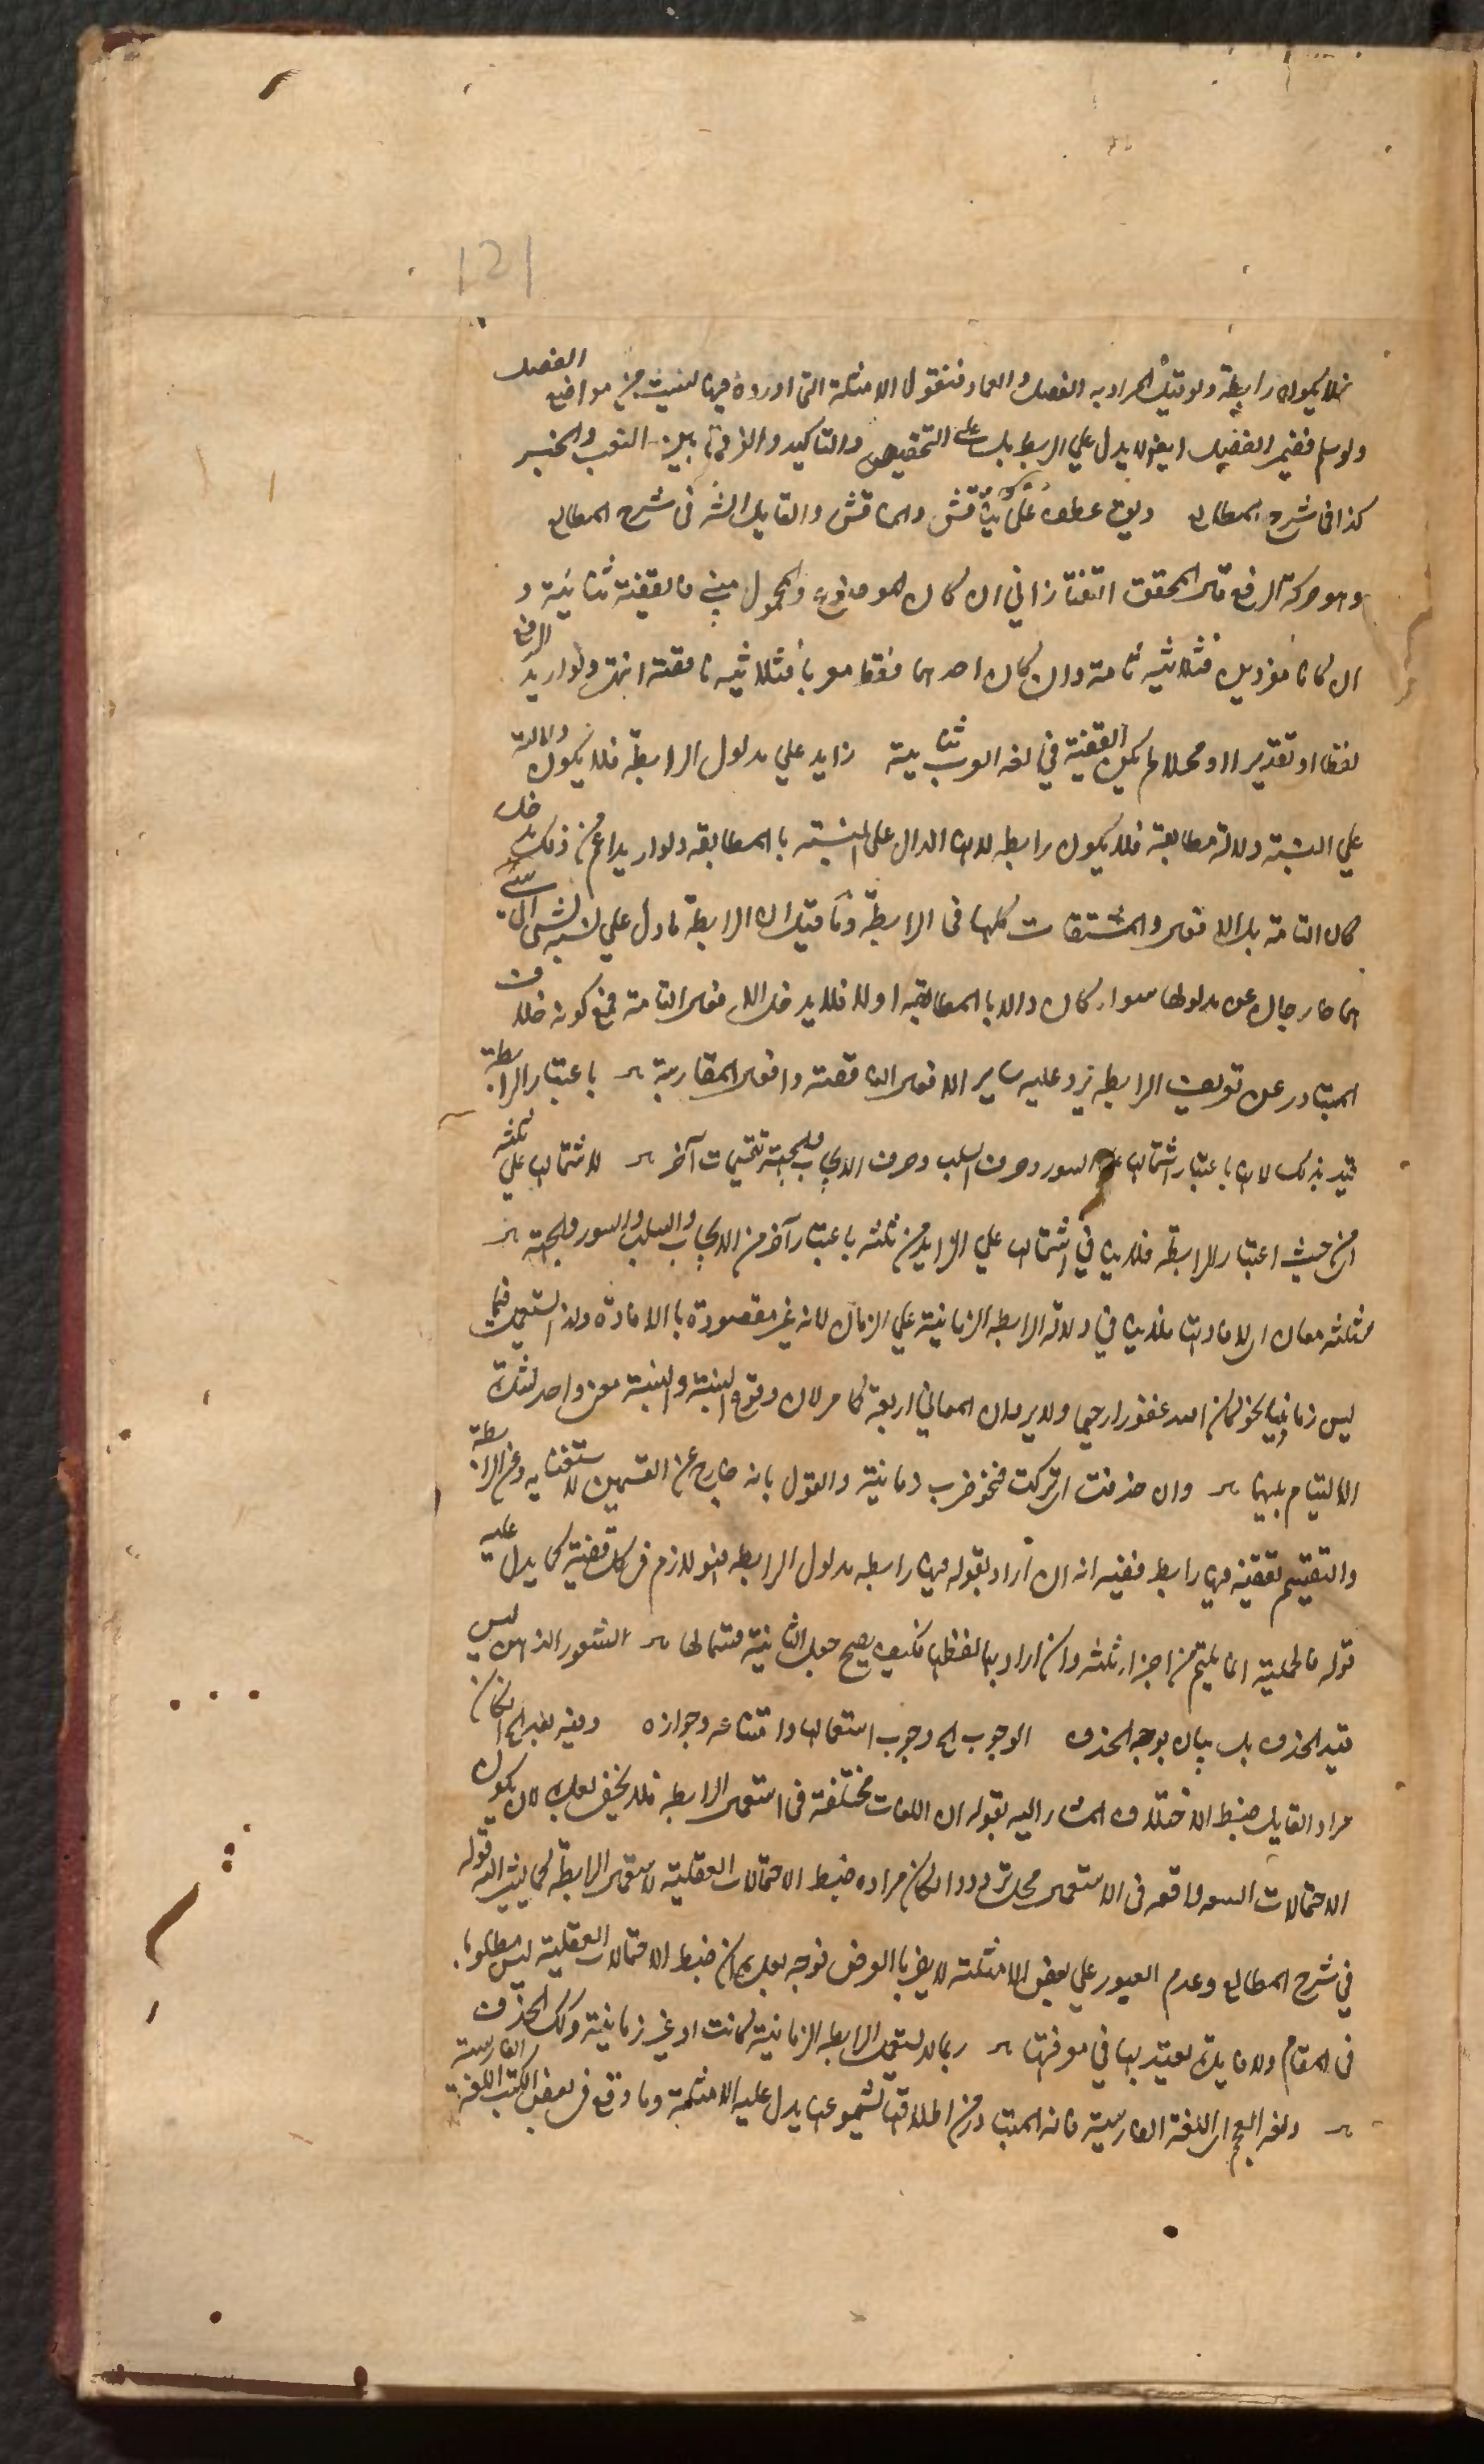 121
فلا يكون رابطة ولو قيل المراد به الفصل والعماد فنقول الامثلة التى اوردوه فيها ليست من مواضع الفصل
ولو سلم فضمير الفصل ايضا لا يدل على الربط بل على التخصيص والتاكيد والفرق بين النعت والخبر
كذا فى شرح المطالع وليس عطفه على يناقش والمناقش والقايل الش فى شرح المطالع
وهو حركة الرفع قال المحقق التفتازانى ان كان الموضوع والمحمول مبنى فالقضية ثنائية و
ان كانا معربين فثلاثية تامة وان كان احدهما فقط معربا فثلاثية ناقصة انتهى ولو اريد الرفع
لفظا او تقديرا او محلا لم يكن القضية فى لغة العرب ثنائية زايد على مدلول الرابطة فلا يكون دلالته
على النسبة دلالة مطابقة فلا يكون رابطة لان الدال على النسبة بالمطابقة ولو اريد اعم من ذلك دخل
كان التامة بل الافعال والمشتقات كلها فى الرابطة وما قيل ان الرابطة ما دل على نسبة شئ الى شئ
هما خارجان عن مدلولها سواء كان دالا بالمطابقة او لا فلا يدخل الافعال التامة فمع كونه خلاف
المتبادر عن تعريف الرابطة يرد عليه ساير الافعال الناقصة وافعال المقاربة باعتبار الرابطة
قيد بذلك لان باعتبار اشتمالها على السور وحرف السلب وحرف الايجاب والجهة تقسيمات آخر لاشتمالها على ثلثة
اى من حيث اعتبار الرابطة فلا ينافى اشتمالها على الزايد من ثلثة باعتبار آخر من الايجاب والسلب والسور والجهة
لثلثة معان اى لافادتها فلا ينافى دلالة الرابطة الزمانية على الزمان لانه غير مقصودة بالافادة ولذا استعمل فيما
ليس زمانيا نحو كان الله غفورا رحيما ولا يرد ان المعانى اربعة كما مر لان وقوع النسبة والنسبة معنى واحد لشدة
الالتيام بينهما وان حذفت اى تركت فنحو ضرب ثنائية والقول بانه خارج عن القسمين لاستغنايه عن الرابطة
والتقسيم لقضية فيها رابطة ففيه انه ان اراد بقوله فيها رابطة مدلول الرابطة فهو لازم فى كل قضية كما يدل عليه
قوله فالحملية انما يلتئم من اجزاء ثلثة وان اراد بها لفظها فكيف يصح جعل الثنائية قسما لها الشعور الذهن ليس
قيد الحذف بل بيان لوجه الحذف الوجوب اى وجوب استعمالها وامتناعه وجوازه وفيه نظر اى ان كان
مراد القايل ضبط الاختلاف المشار اليه بقوله ان اللغات مختلفة فى استعمال الرابطة فلا يخفى بعده لان يكون
الاحتمالات التسعة واقعة فى الاستعمال محل تردد وان كان مراده ضبط الاحتمالات العقلية لاستعمال الرابطة كما يشير اليه قوله
فى شرح المطالع وعدم العبور على بعض الامثلة لا يضر بالغرض فوجه بعده ان ضبط الاحتمالات العقلية ليس مطلوبا
فى المقام ولا فايدة يعتد بها فى معرفتها ربما لا يستعمل الرابطة الزمانية كانت او غير زمانية وكك الحذف
ولغة العجم اى اللغة الفارسية فانه المتبادر من اطلاقها ليشمو عليه يدل عليه الامثلة وما وقع فى بعض الكتب اللغة الفارسية